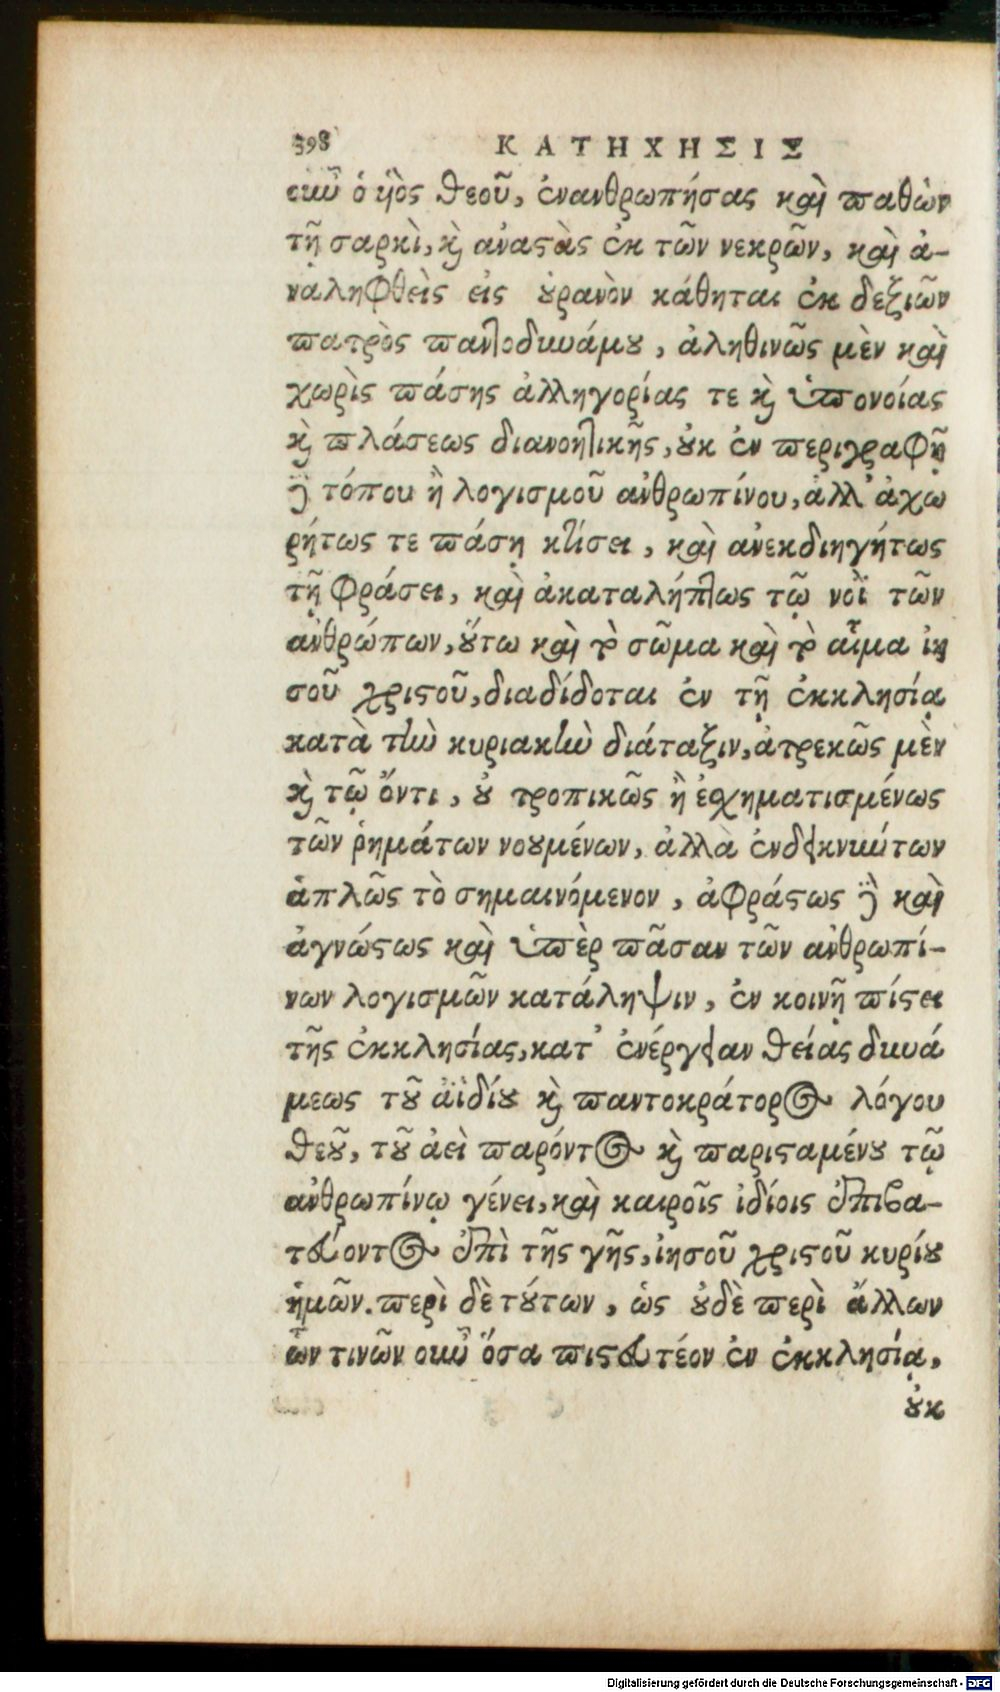 398 ΚΑΤΗΧΗΣΙΣ
οὖν ὁ ὑὸς θεοῦ, ἐνανθρωπήσας καὶ παθὼν
τῇ σαρκὶ, καὶ ἀναστὰς ἐκ τῶν νεκρῶν, καὶ ἀ-
ναληφθεὶς εἰς οὐρανὸν κάθηται ἐκ δεξιῶν
πατρὸς παντοδυνάμου, ἀληθινῶς μὲν καὶ
χωρὶς πάσης ἀλληγορίας τε καὶ ὑπονοίας
καὶ πλάσεως διανοητικῆς, οὐκ ἐν περιγραφῇ
δὲ τόπου ἢ λογισμοῦ ἀνθρωπίνου, ἀλλ' ἀχω
ρήτως τε πάσῃ κτίσει, καὶ ἀνεκδιηγήτως
τῇ φράσει, καὶ ἀκαταλήπτως τῷ νοῒ τῶν
ἀνθρώπων, οὕτω καὶ τὸ σῶμα καὶ τὸ αἷμα ἰη
σοῦ χριστοῦ, διαδίδοται ἐν τῇ ἐκκλησίᾳ
κατὰ τὴν κυριακὴν διάταξιν, ἀτρεκῶς μὲν
καὶ τῷ ὄντι, οὐ τροπικῶς ἢ ἐσχηματισμένως
τῶν ῥημάτων νουμένων, ἀλλὰ ἐνδεικνύντων
ἁπλῶς τὸ σημαινόμενον, ἀφράστως δὲ καὶ
ἀγνώστως καὶ ὑπὲρ πᾶσαν τῶν ἀνθρωπί-
νων λογισμῶν κατάληψιν, ἐν κοινῇ πίστει
τῆς ἐκκλησίας, κατ' ἐνέργειαν θείας δυνά
μεως τοῦ ἀϊδίου καὶ παντοκράτορος λόγου
θεοῦ, τοῦ ἀεὶ παρόντος καὶ παρισταμένου τῷ
ἀνθρωπίνῳ γένει, καὶ καιροῖς ἰδίοις ἐπιβα-
τεύοντος ἐπὶ τῆς γῆς, ἰησοῦ χριστοῦ κυρίου
ἡμῶν. περὶ δὲ τούτων, ὡς οὐδὲ περὶ ἄλλων
ὧν τινῶν οὖν ὅσα πιστευτέον ἐν ἐκκλησίᾳ,
οὐκ
Digitalisierung gefördert durch die Deutsche Forschungsgemeinschaft - DFG